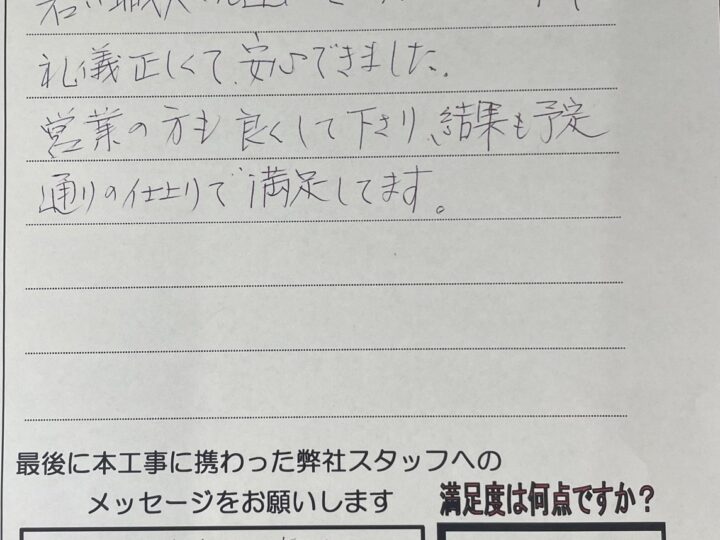 若い職人
礼儀正しくて、安心できました。
営業の方も良くして下さり、結果も予定
通りの仕上りで満足してます。
最後に本工事に携わった弊社スタッフへの
メッセージをお願いします
満足度は何点ですか？